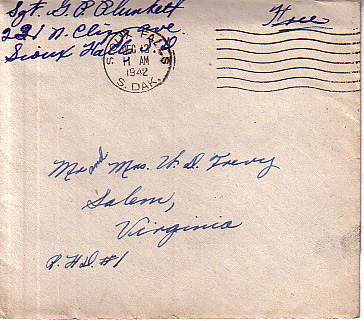 Sgt. G. P. Plunkett
221 N. Cliff Ave.
Sioux Falls, S. D.
Free
SIOUX FALLS
DEC 12
11 AM
1942
S. DAK.
Mr and Mrs. W. D. Frevy
Salem,
Virginia
R. F. D. #1